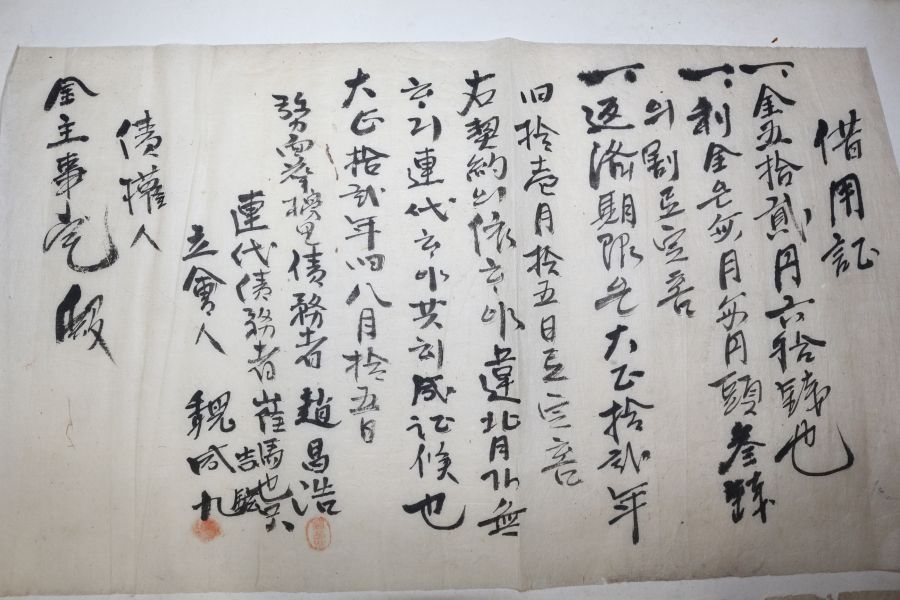 借用証
一、金五拾貳円六拾錢也
一、利金은每月每円頭叄錢
의割로定홈
一、返済期限은大正拾弐年
旧拾壱月拾五日로定홈
右契約의依하야違背가無
하기連代하야共히成証候也
大正拾弐年旧八月拾五日
債務者 趙昌浩
連代債務者 崔馮
立會人 魏成九
債權人
金主事宅 殿